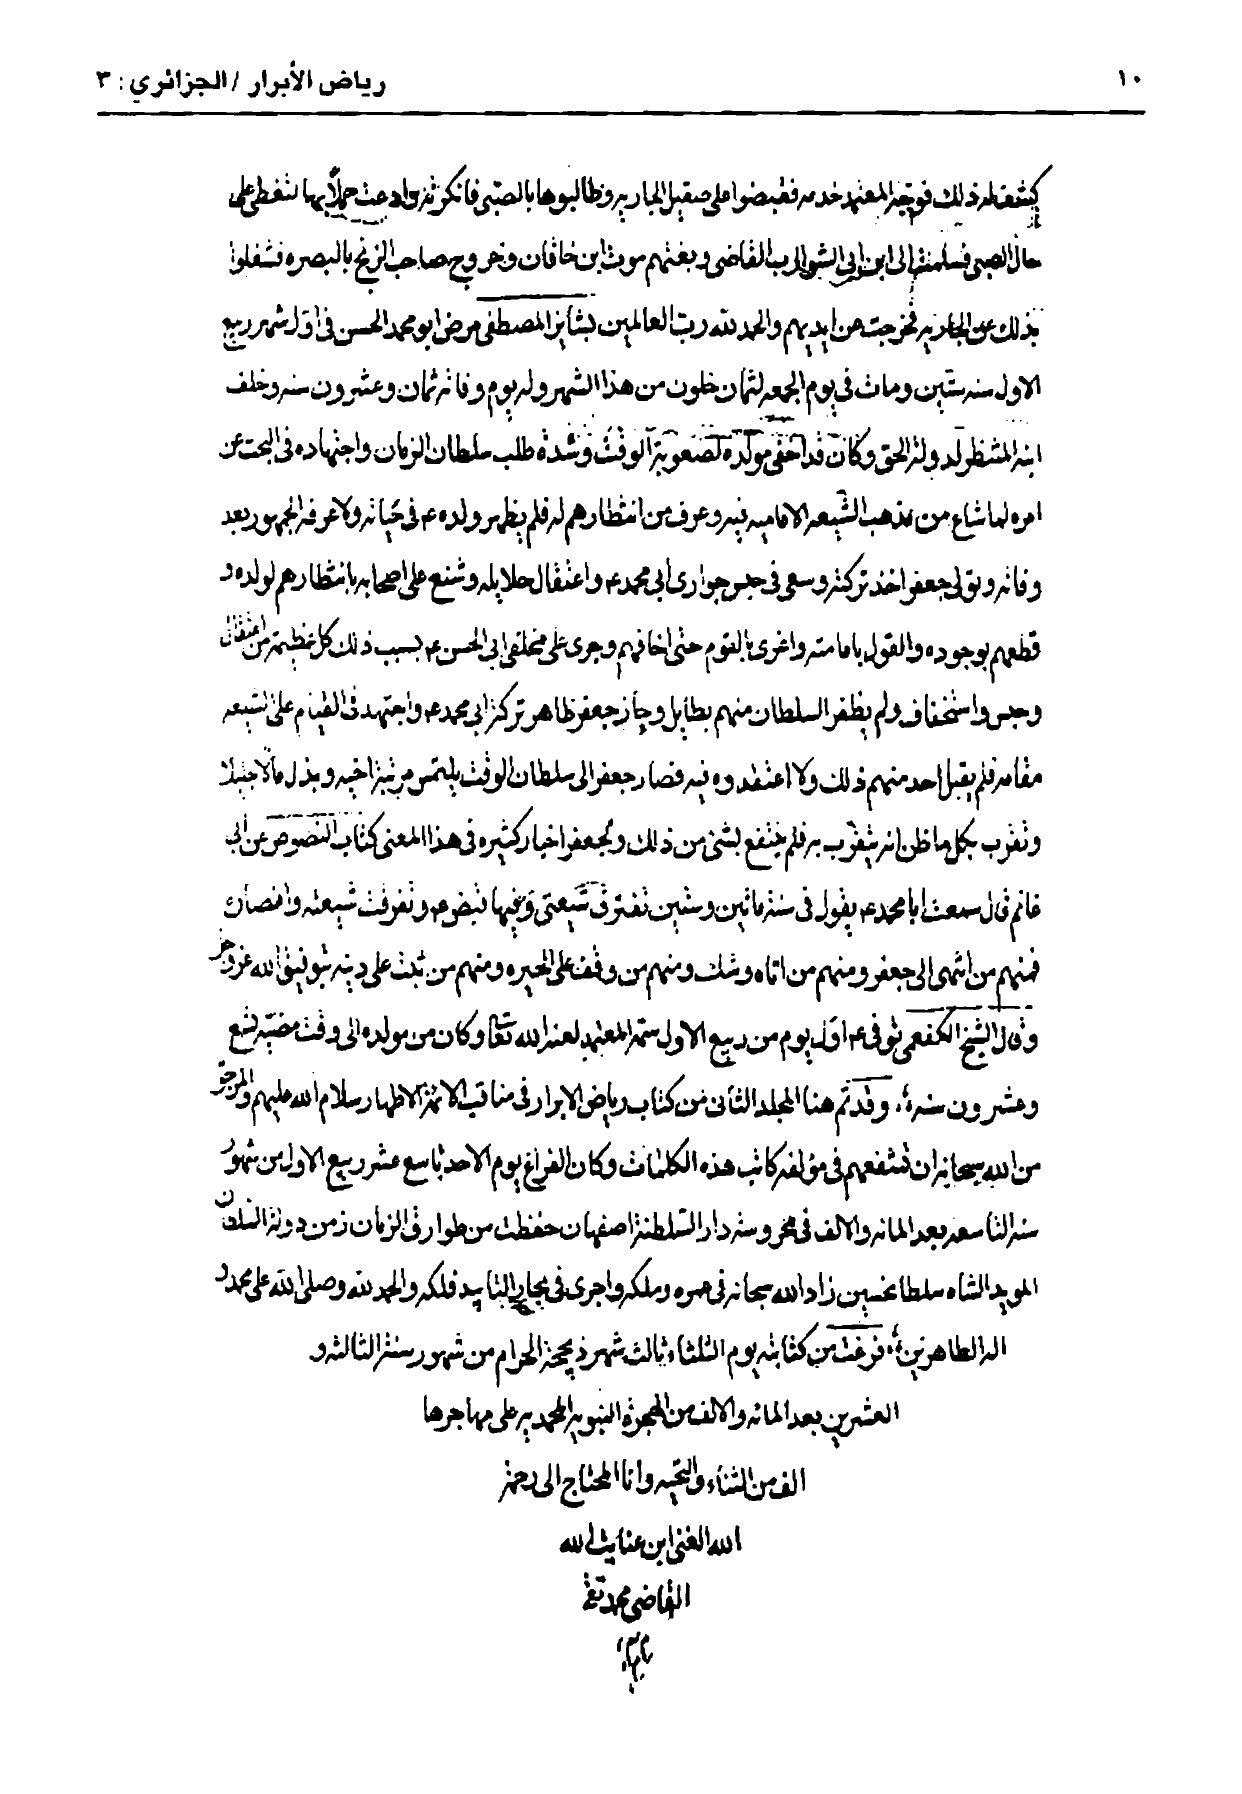 ١٠
رياض الأبرار / الجزائري : ٣
كشف له ذلك فوجه المعتمد خدمه فقبضوا على صقيل الجاريه وطالبوها بالصبى فانكرته وادعت حملا بها لتغطى على
حال الصبى فسلمت الى ابن ابى الشوارب القاضى وبغتهم موت ابن خاقان وخروج صاحب الزنج بالبصره فشغلوا
بذلك عن الجاريه فخرجت عن ايديهم والحمد لله رب العالمين بشاير المصطفى مرض ابو محمد الحسن فى اول شهر ربيع
الاول سنه ستين ومات فى يوم الجمعه لثمان خلون من هذا الشهر وله يوم وفاته ثمان وعشرون سنه وخلف
ابنه المنتظر لدولة الحق وكان قد اخفى مولده لصعوبة الوقت وشدة طلب سلطان الزمان واجتهاده فى البحث عن
امره لما شاع من مذهب الشيعه الاماميه فيه وعرف من انتظارهم له فلم يظهر ولده ع فى حياته ولا عرفه الجمهور بعد
وفاته وتولى جعفر اخذ تركته وسعى فى حبس جوارى ابى محمد ع واعتقال حلايله وشنع على اصحابه بانتظارهم لولده و
قطعهم بوجوده والقول بامامته واغرى بالقوم حتى اخافهم وجرى على مخلفى ابى الحسن ع بسبب ذلك كل عظيمة من اعتقال
وحبس واستخفاف ولم يظفر السلطان منهم بطايل وحاز جعفر ظاهر تركة ابى محمد ع واجتهد فى القيام على الشيعه
مقامه فلم يقبل احد منهم ذلك ولا اعتقدوه فيه فصار جعفر الى سلطان الوقت يلتمس مرتبة اخيه وبذل مالا جليلا
وتقرب بكل ما ظن انه يتقرب به فلم ينتفع بشئ من ذلك ولجعفر اخبار كثيره فى هذا المعنى كتاب النصوص عن ابى
غانم قال سمعت ابا محمد ع يقول فى سنة ماتين وستين تفترق شيعتى وفيها قبض ع وتفرقت شيعته وانصاره
فمنهم من انتمى الى جعفر ومنهم من اتاه وشك ومنهم من وقف على الحيره ومنهم من ثبت على دينه بتوفيق الله عز وجل
وقال الشيخ الكفعمى توفى ع اول يوم من ربيع الاول سمه المعتمد لعنه الله تعا وكان من مولده الى وقت مضيه تسع
وعشرون سنه، وقد تم هنا المجلد الثانى من كتاب رياض الابرار فى مناقب الائمة الاطهار سلام الله عليهم والمرجو
من الله سبحانه ان تشفعهم فى مؤلفه كاتب هذه الكلمات وكان الفراغ يوم الاحد تاسع عشر ربيع الاول من شهور
سنه التاسعه بعد المائه والالف فى محروسة دار السلطنة اصفهان حفظت من طوارق الزمان زمن دولة السلطان
المويد الشاه سلطانحسين زاد الله سبحانه فى عمره وملكه واجرى فى بحار التاييد فلكه والحمد لله وصلى الله على محمد و
اله الطاهرين، فرغت من كتابته يوم الثلثاء ثالث شهر ذيحجة الحرام من شهور سنة الثالثه و
العشرين بعد المائه والالف من الهجرة النبويه المحمديه على مهاجرها
الف من الثناء والتحيه وانا المحتاج الى رحمة
الله الغنى ابن عنايت الله
القاضى محمد تقى